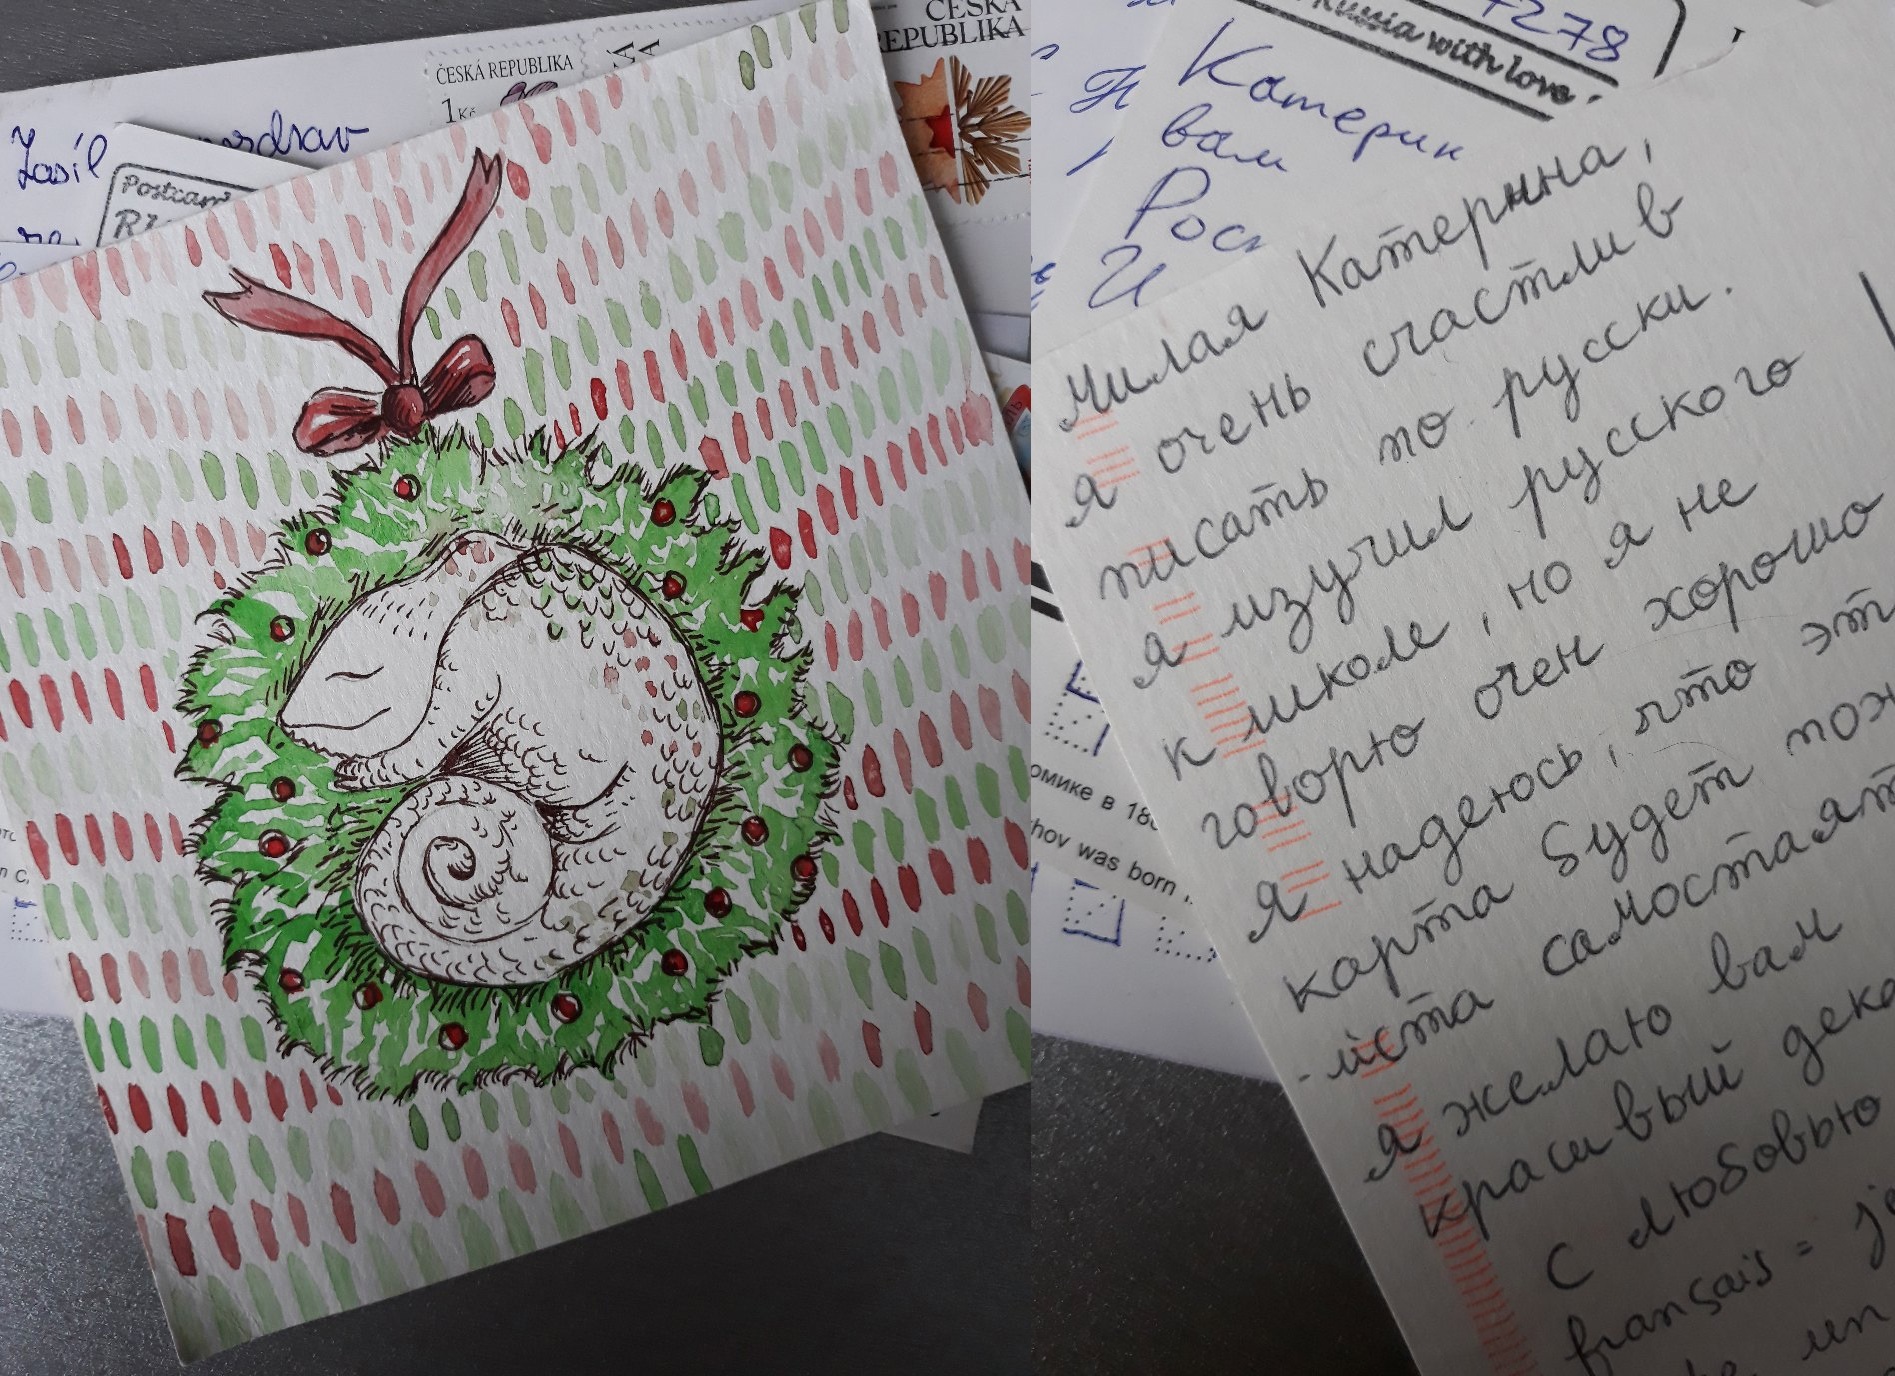 ČESKÁ REPUBLIKA
1 Kč
ČESKÁ
REPUBLIKA
Postcard
7278
Russia with love
Катерин
вам
Рос
И
Милая Катерина,
я очень счастлив
писать по русски.
я изучил русского
к школе, но я не
говорю очен хорошо
я надеюсь, что эт
карта будет
-иста самостаят
я желаю вам
красивый дека
С любовью
français = je
un
омике в 18
hov was born